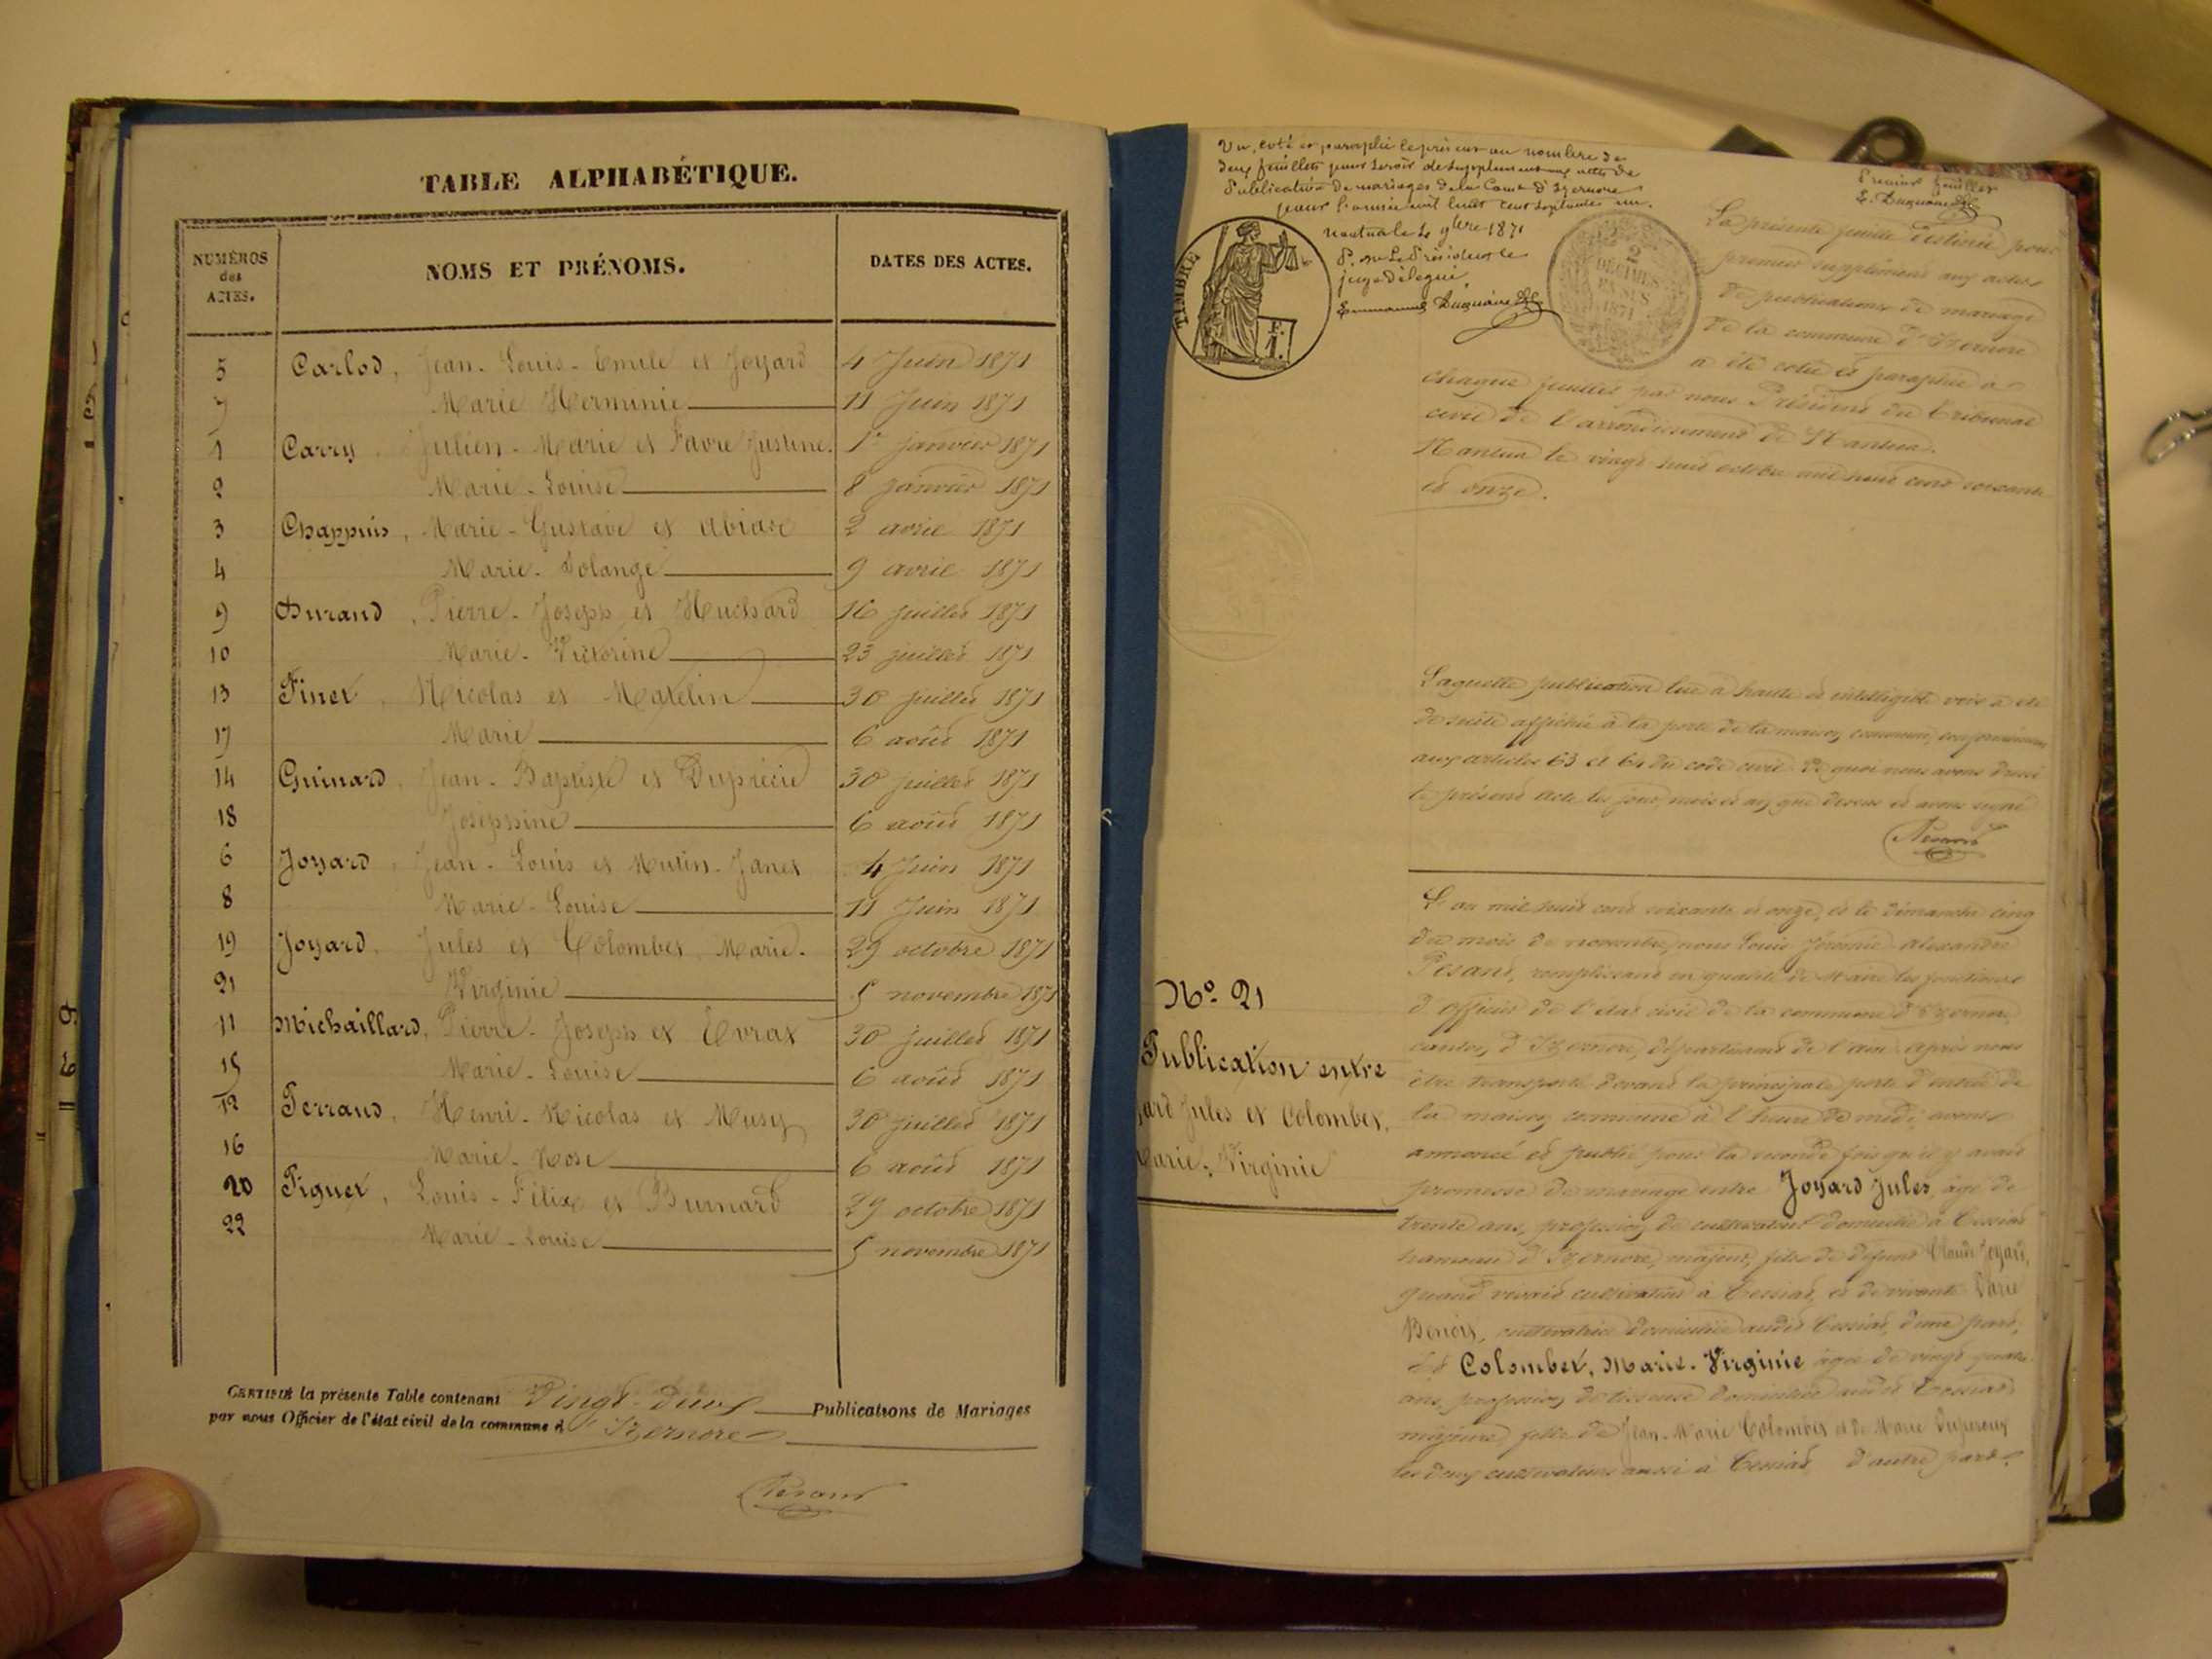 TABLE ALPHABÉTIQUE.
NUMÉROS
des
ACTES.
NOMS ET PRÉNOMS.
DATES DES ACTES.
5 Carlod, Jean-Louis-Emile et Joyard 4 Juin 1871
7 Marie Herminie 11 Juin 1871
1 Carry, Julien-Marie et Favre Justine. 1er janvier 1871
2 Marie-Louise 8 janvier 1871
3 Chappuis, Marie-Gustave et Abiase 2 avril 1871
4 Marie-Solange 9 avril 1871
9 Durand, Pierre-Joseph et Huchard 16 juillet 1871
10 Marie-Victorine 23 juillet 1871
13 Finet, Nicolas et Matelin 30 juillet 1871
17 Marie 6 août 1871
14 Guinard, Jean-Baptiste et Duprécie 30 juillet 1871
18 Joséphine 6 août 1871
6 Joyard, Jean-Louis et Mutin-Janet 4 Juin 1871
8 Marie-Louise 11 Juin 1871
19 Joyard, Jules et Colombet, Marie. 29 octobre 1871
21 Virginie 5 novembre 1871
11 Michaillard, Pierre-Joseph et Evrat 30 juillet 1871
15 Marie-Louise 6 août 1871
12 Perraud, Henri-Nicolas et Musy 30 juillet 1871
16 Marie-Rose 6 août 1871
20 Piquet, Louis-Félix et Burnard 29 octobre 1871
22 Marie-Louise 5 novembre 1871
CERTIFIÉ la présente Table contenant Vingt-deux Publications de Mariages
par nous Officier de l'état civil de la commune d'Izernore
Pesant
Vu, coté et paraphé le présent au nombre de
deux feuillets pour servir de supplément aux actes de
Publication de mariages de la Come d'Izernore
pour l'année mil huit cent soixante un.
Nantua le 4 9bre 1871
P. Mr Le Président le
juge délégué
Emmanuel Duquaire
Premier feuillet
E. Duquaire
TIMBRE
F.
1.
2
DÉCIMES
EN SUS
1871
La présente feuille destinée pour
premier supplément aux actes
de publications de mariage
de la commune d'Izernore
a été cotée et paraphée à
chaque feuillet par nous Président du Tribunal
civil de l'arrondissement de Nantua.
Nantua le vingt huit octobre mil huit cent soixante
et onze.
Laquelle publication lue à haute et intelligible voix a été
de suite affichée à la porte de la maison commune, conformément
aux articles 63 et 64 du code civil. De quoi nous avons dressé
le présent acte les jour, mois et an que dessus et avons signé
Pesant
No. 21
Publication entre
yard Jules et Colombet,
Marie, Virginie
L'an mil huit cent soixante et onze, et le dimanche cinq
du mois de novembre, nous Louis Jérémie Alexandre
Pesant, remplissant en qualité de Maire les fonctions
d'officier de l'état civil de la commune d'Izernore,
canton d'Izernore, département de l'ain. après nous
être transporté devant la principale porte d'entrée de
la maison commune à l'heure de midi, avons
annoncé et publié pour la seconde fois qu'il y avait
promesse de mariage entre Joyard Jules, âgé de
trente ans, profession de cultivateur domicilié à Cessiat
hameau d'Izernore, majeur, fils de défunt Claude Joyard,
quand vivait cultivateur à Cessiat, et de vivante Marie
Benoit, cultivatrice domiciliée audit Cessiat, d'une part,
Et Colombet, Marie-Virginie âgée de vingt quatre
ans, profession de tisseuse domiciliée audit Cessiat
majeure fille de Jean-Marie Colombet et de Marie Duperoux
les deux cultivateurs aussi à Cessiat d'autre part.